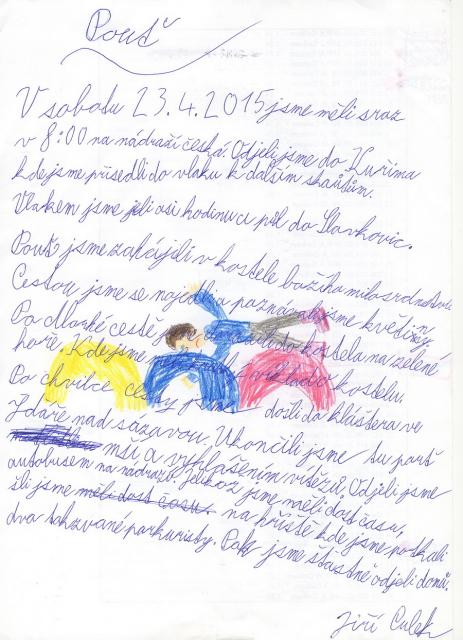 Pouť
V sobotu 23.4.2015 jsme měli sraz
v 8:00 na nádraží česká. Odjeli jsme do Kuřima
kde jsme přisedli do vlaku k dalším skautům.
Vlakem jsme jeli asi hodinu a půl do Slavkovic.
Pouť jsme zahájili v kostele božího milosrdenství
Cestou jsme se najedli a poznávali jsme květiny.
Po dlouhé cestě jsme do kostela na zelené
hoře. Kde jsme výklad o kostelu.
Po chvilce cesty jsme došli do kláštera ve
Žďáře nad sázavou. Ukončili jsme tu pouť
mší a vyhlášením vítězů. Odjeli jsme
autobusem na nádraží. Jelikož jsme měli dost času,
šli jsme na hřiště kde jsme potkali
dva takzvané parkuristy. Pak jsme šťastně odjeli domů.
Jiří Culek